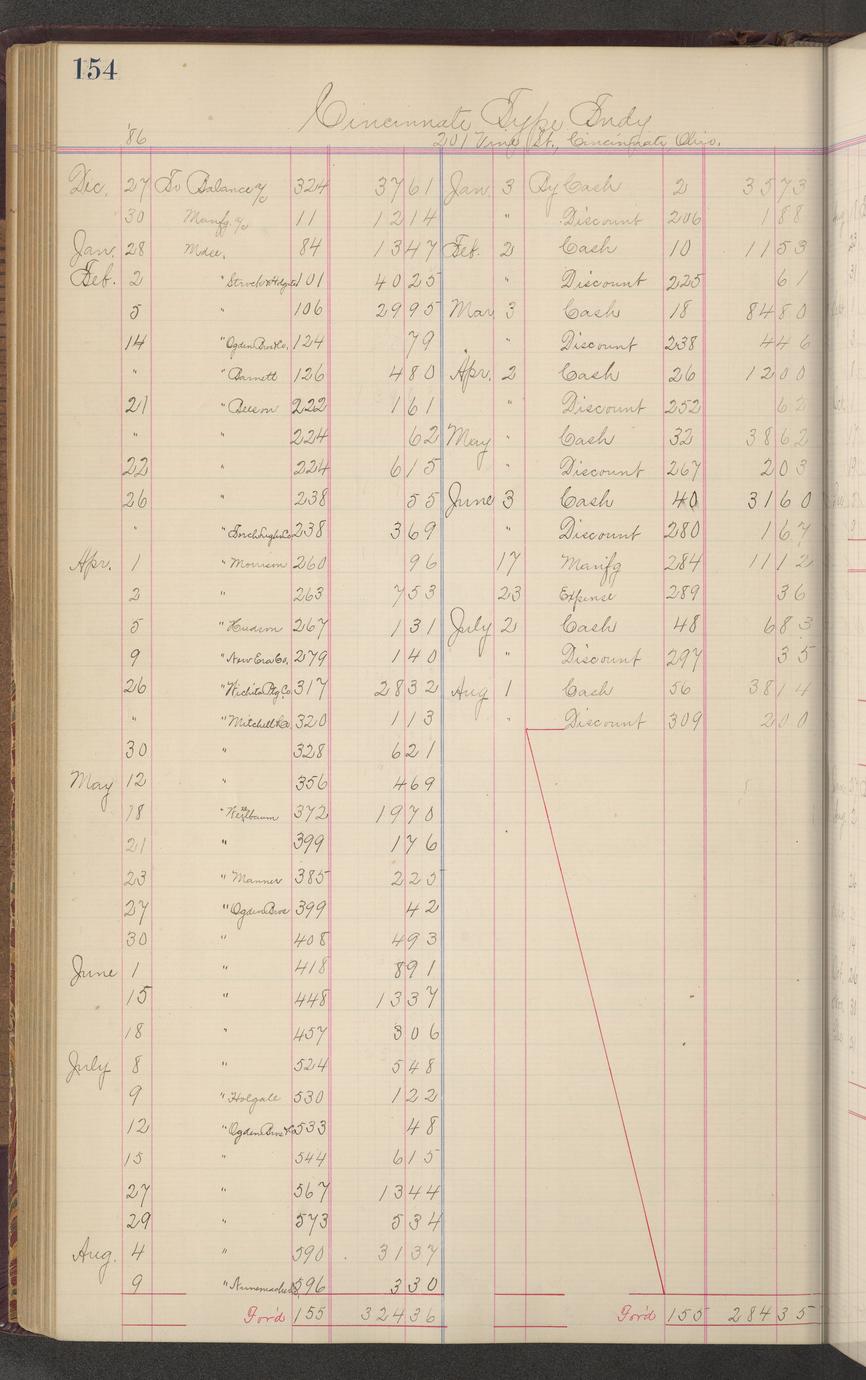 154
Cincinnati Type Fndy
'86 201 Vine St., Cincinnati, Ohio.
Dec. 27 To Balance a/c 324 37 61 Jan. 3 By Cash 2 35 73
30 Manfg. a/c 11 12 14 " Discount 206 1 88
Jan. 28 Mdse. 84 13 47 Feb. 2 Cash 10 11 53
Feb. 2 " 101 40 25 " Discount 225 61
5 " 106 29 95 Mar 3 Cash 18 84 80
14 " Ogden Bros & Co. 124 79 " Discount 238 4 46
" " Barnett 126 4 80 Apr. 2 Cash 26 12 00
21 " Beeson 222 1 61 " Discount 252 62
" " 224 62 May " Cash 32 38 62
22 " 224 6 15 " Discount 267 2 03
26 " 238 55 June 3 Cash 40 31 60
" " 238 3 69 " Discount 280 1 67
Apr. 1 " Morrison 260 96 17 Manfg 284 11 12
2 " 263 7 53 23 Expense 289 36
5 " Hudson 267 1 31 July 2 Cash 48 6 83
9 " New Era Co. 279 1 40 " Discount 297 35
26 " Wichita Ptg Co. 317 28 32 Aug 1 Cash 56 38 14
" " Mitchell & Co. 320 1 13 " Discount 309 2 00
30 " 328 6 21
May 12 " 356 4 69
18 " 372 19 70
21 " 399 1 76
23 " Manner 385 2 25
27 " Ogden Bros 399 42
30 " 408 4 93
June 1 " 418 8 91
15 " 448 13 37
18 " 457 3 06
July 8 " 524 5 48
9 " Holgate 530 1 22
12 " Ogden Bros & Co 533 48
15 " 544 6 15
27 " 567 13 44
29 " 573 5 34
Aug. 4 " 590 31 37
9 " 596 3 30
For'd 155 324 36 For'd 155 284 35